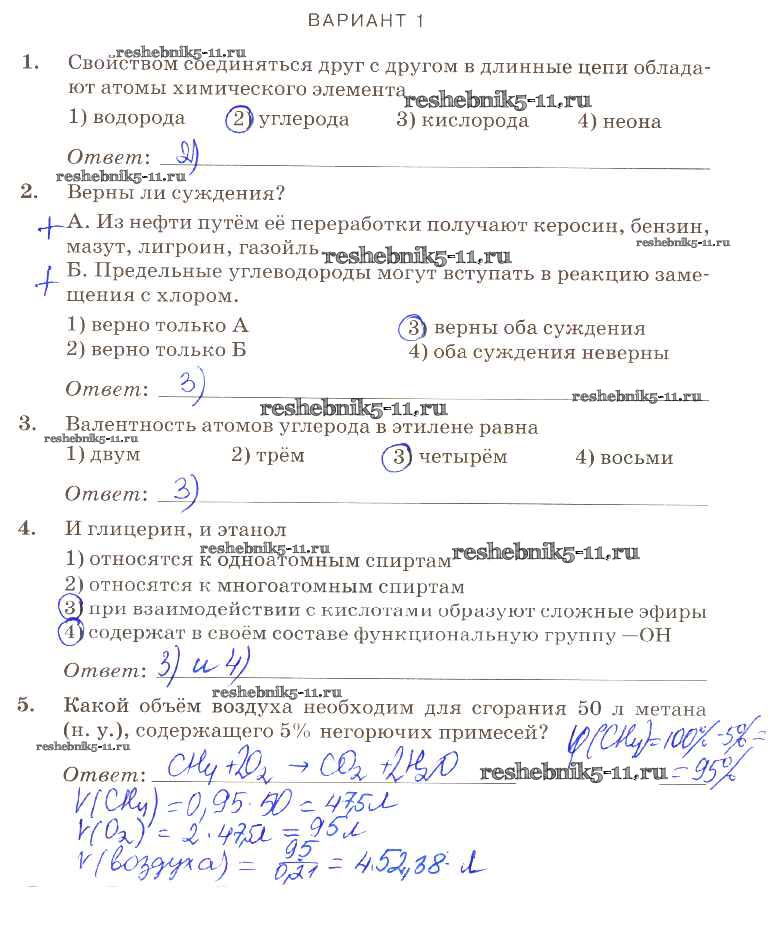 ВАРИАНТ 1
reshebnik5-11.ru
1. Свойством соединяться друг с другом в длинные цепи облада-
ют атомы химического элемента
reshebnik5-11.ru
1) водорода 2) углерода 3) кислорода 4) неона
Ответ: 2)
reshebnik5-11.ru
2. Верны ли суждения?
+ А. Из нефти путём её переработки получают керосин, бензин,
мазут, лигроин, газойль
reshebnik5-11.ru reshebnik5-11.ru
+ Б. Предельные углеводороды могут вступать в реакцию заме-
щения с хлором.
1) верно только А 3) верны оба суждения
2) верно только Б 4) оба суждения неверны
Ответ: 3)
reshebnik5-11.ru reshebnik5-11.ru
3. Валентность атомов углерода в этилене равна
reshebnik5-11.ru
1) двум 2) трём 3) четырём 4) восьми
Ответ: 3)
4. И глицерин, и этанол
reshebnik5-11.ru reshebnik5-11.ru
1) относятся к одноатомным спиртам
2) относятся к многоатомным спиртам
3) при взаимодействии с кислотами образуют сложные эфиры
4) содержат в своём составе функциональную группу —ОН
Ответ: 3) и 4)
reshebnik5-11.ru
5. Какой объём воздуха необходим для сгорания 50 л метана
(н. у.), содержащего 5% негорючих примесей? φ(CH4)=100%-5%=
reshebnik5-11.ru
=95%
Ответ: CH4+2O2 → CO2+2H2O
reshebnik5-11.ru
V(CH4)=0,95·50=47,5л
V(O2)=2·47,5л=95л
V(воздуха)=95/0,21=452,38 л